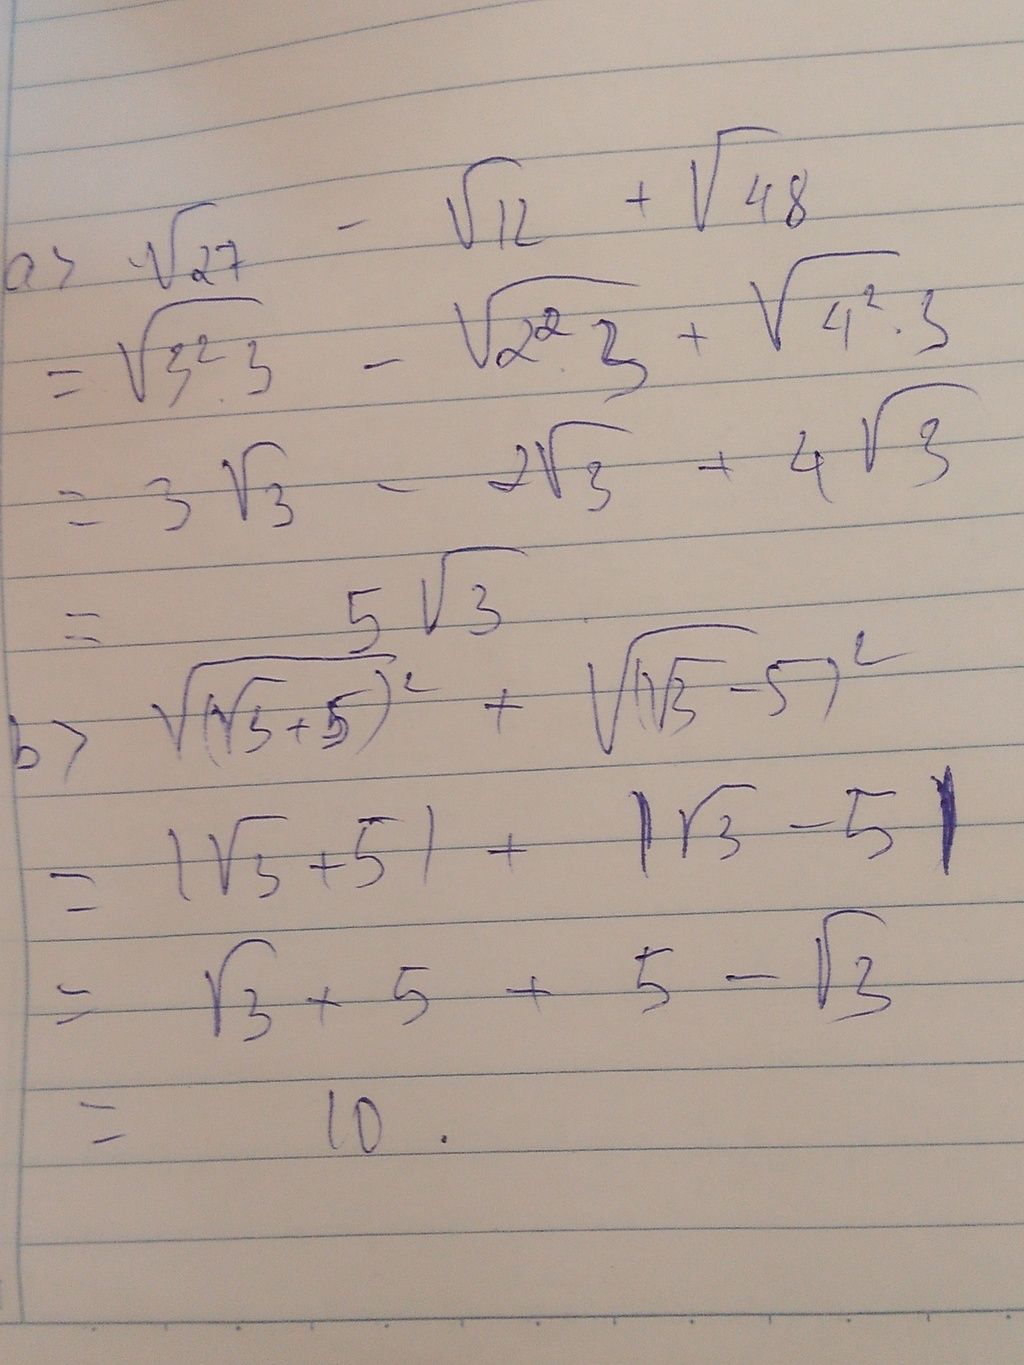 a> √27 - √12 + √48
= √3².3 - √2².3 + √4².3
= 3√3 - 2√3 + 4√3
= 5√3
b> √(√3+5)² + √(√3-5)²
= |√3+5| + |√3-5|
= √3 + 5 + 5 - √3
= 10.